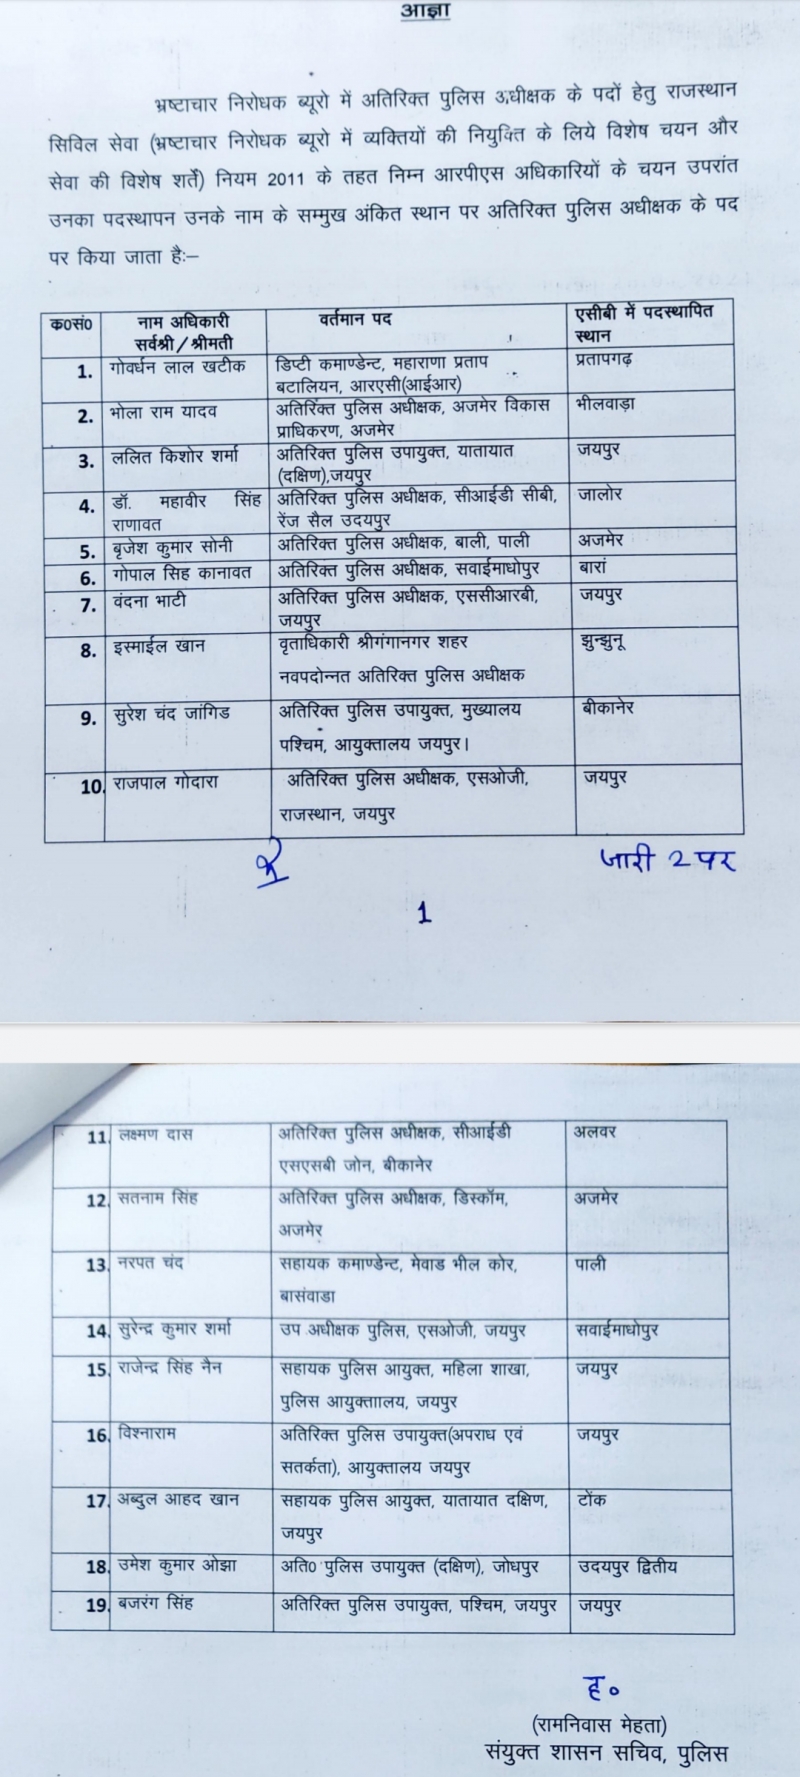 आज्ञा
भ्रष्टाचार निरोधक ब्यूरो में अतिरिक्त पुलिस अधीक्षक के पदों हेतु राजस्थान
सिविल सेवा (भ्रष्टाचार निरोधक ब्यूरो में व्यक्तियों की नियुक्ति के लिये विशेष चयन और
सेवा की विशेष शर्तें) नियम 2011 के तहत निम्न आरपीएस अधिकारियों के चयन उपरांत
उनका पदस्थापन उनके नाम के सम्मुख अंकित स्थान पर अतिरिक्त पुलिस अधीक्षक के पद
पर किया जाता है:–
क०सं० नाम अधिकारी वर्तमान पद एसीबी में पदस्थापित
सर्वश्री/श्रीमती स्थान
1. गोवर्धन लाल खटीक डिप्टी कमाण्डेन्ट, महाराणा प्रताप प्रतापगढ़
बटालियन, आरएसी(आईआर)
2. भोला राम यादव अतिरिक्त पुलिस अधीक्षक, अजमेर विकास भीलवाड़ा
प्राधिकरण, अजमेर
3. ललित किशोर शर्मा अतिरिक्त पुलिस उपायुक्त, यातायात जयपुर
(दक्षिण),जयपुर
4. डॉ. महावीर सिंह अतिरिक्त पुलिस अधीक्षक, सीआईडी सीबी, जालोर
राणावत रेंज सैल उदयपुर
5. बृजेश कुमार सोनी अतिरिक्त पुलिस अधीक्षक, बाली, पाली अजमेर
6. गोपाल सिह कानावत अतिरिक्त पुलिस अधीक्षक, सवाईमाधोपुर बारां
7. वंदना भाटी अतिरिक्त पुलिस अधीक्षक, एससीआरबी, जयपुर
जयपुर
8. इस्माईल खान वृताधिकारी श्रीगंगानगर शहर झुन्झुनू
नवपदोन्नत अतिरिक्त पुलिस अधीक्षक
9. सुरेश चंद जांगिड अतिरिक्त पुलिस उपायुक्त, मुख्यालय बीकानेर
पश्चिम, आयुक्तालय जयपुर।
10. राजपाल गोदारा अतिरिक्त पुलिस अधीक्षक, एसओजी, जयपुर
राजस्थान, जयपुर
जारी 2 पर
1
11. लक्ष्मण दास अतिरिक्त पुलिस अधीक्षक, सीआईडी अलवर
एसएसबी जोन, बीकानेर
12. सतनाम सिंह अतिरिक्त पुलिस अधीक्षक, डिस्कॉम, अजमेर
अजमेर
13. नरपत चंद सहायक कमाण्डेन्ट, मेवाड भील कोर, पाली
बासंवाडा
14. सुरेन्द्र कुमार शर्मा उप अधीक्षक पुलिस, एसओजी, जयपुर सवाईमाधोपुर
15. राजेन्द्र सिंह नैन सहायक पुलिस आयुक्त, महिला शाखा, जयपुर
पुलिस आयुक्ताालय, जयपुर
16. विश्नाराम अतिरिक्त पुलिस उपायुक्त(अपराध एवं जयपुर
सतर्कता), आयुक्तालय जयपुर
17. अब्दुल आहद खान सहायक पुलिस आयुक्त, यातायात दक्षिण, टोंक
जयपुर
18. उमेश कुमार ओझा अति० पुलिस उपायुक्त (दक्षिण), जोधपुर उदयपुर द्वितीय
19. बजरंग सिंह अतिरिक्त पुलिस उपायुक्त, पश्चिम, जयपुर जयपुर
ह०
(रामनिवास मेहता)
संयुक्त शासन सचिव, पुलिस